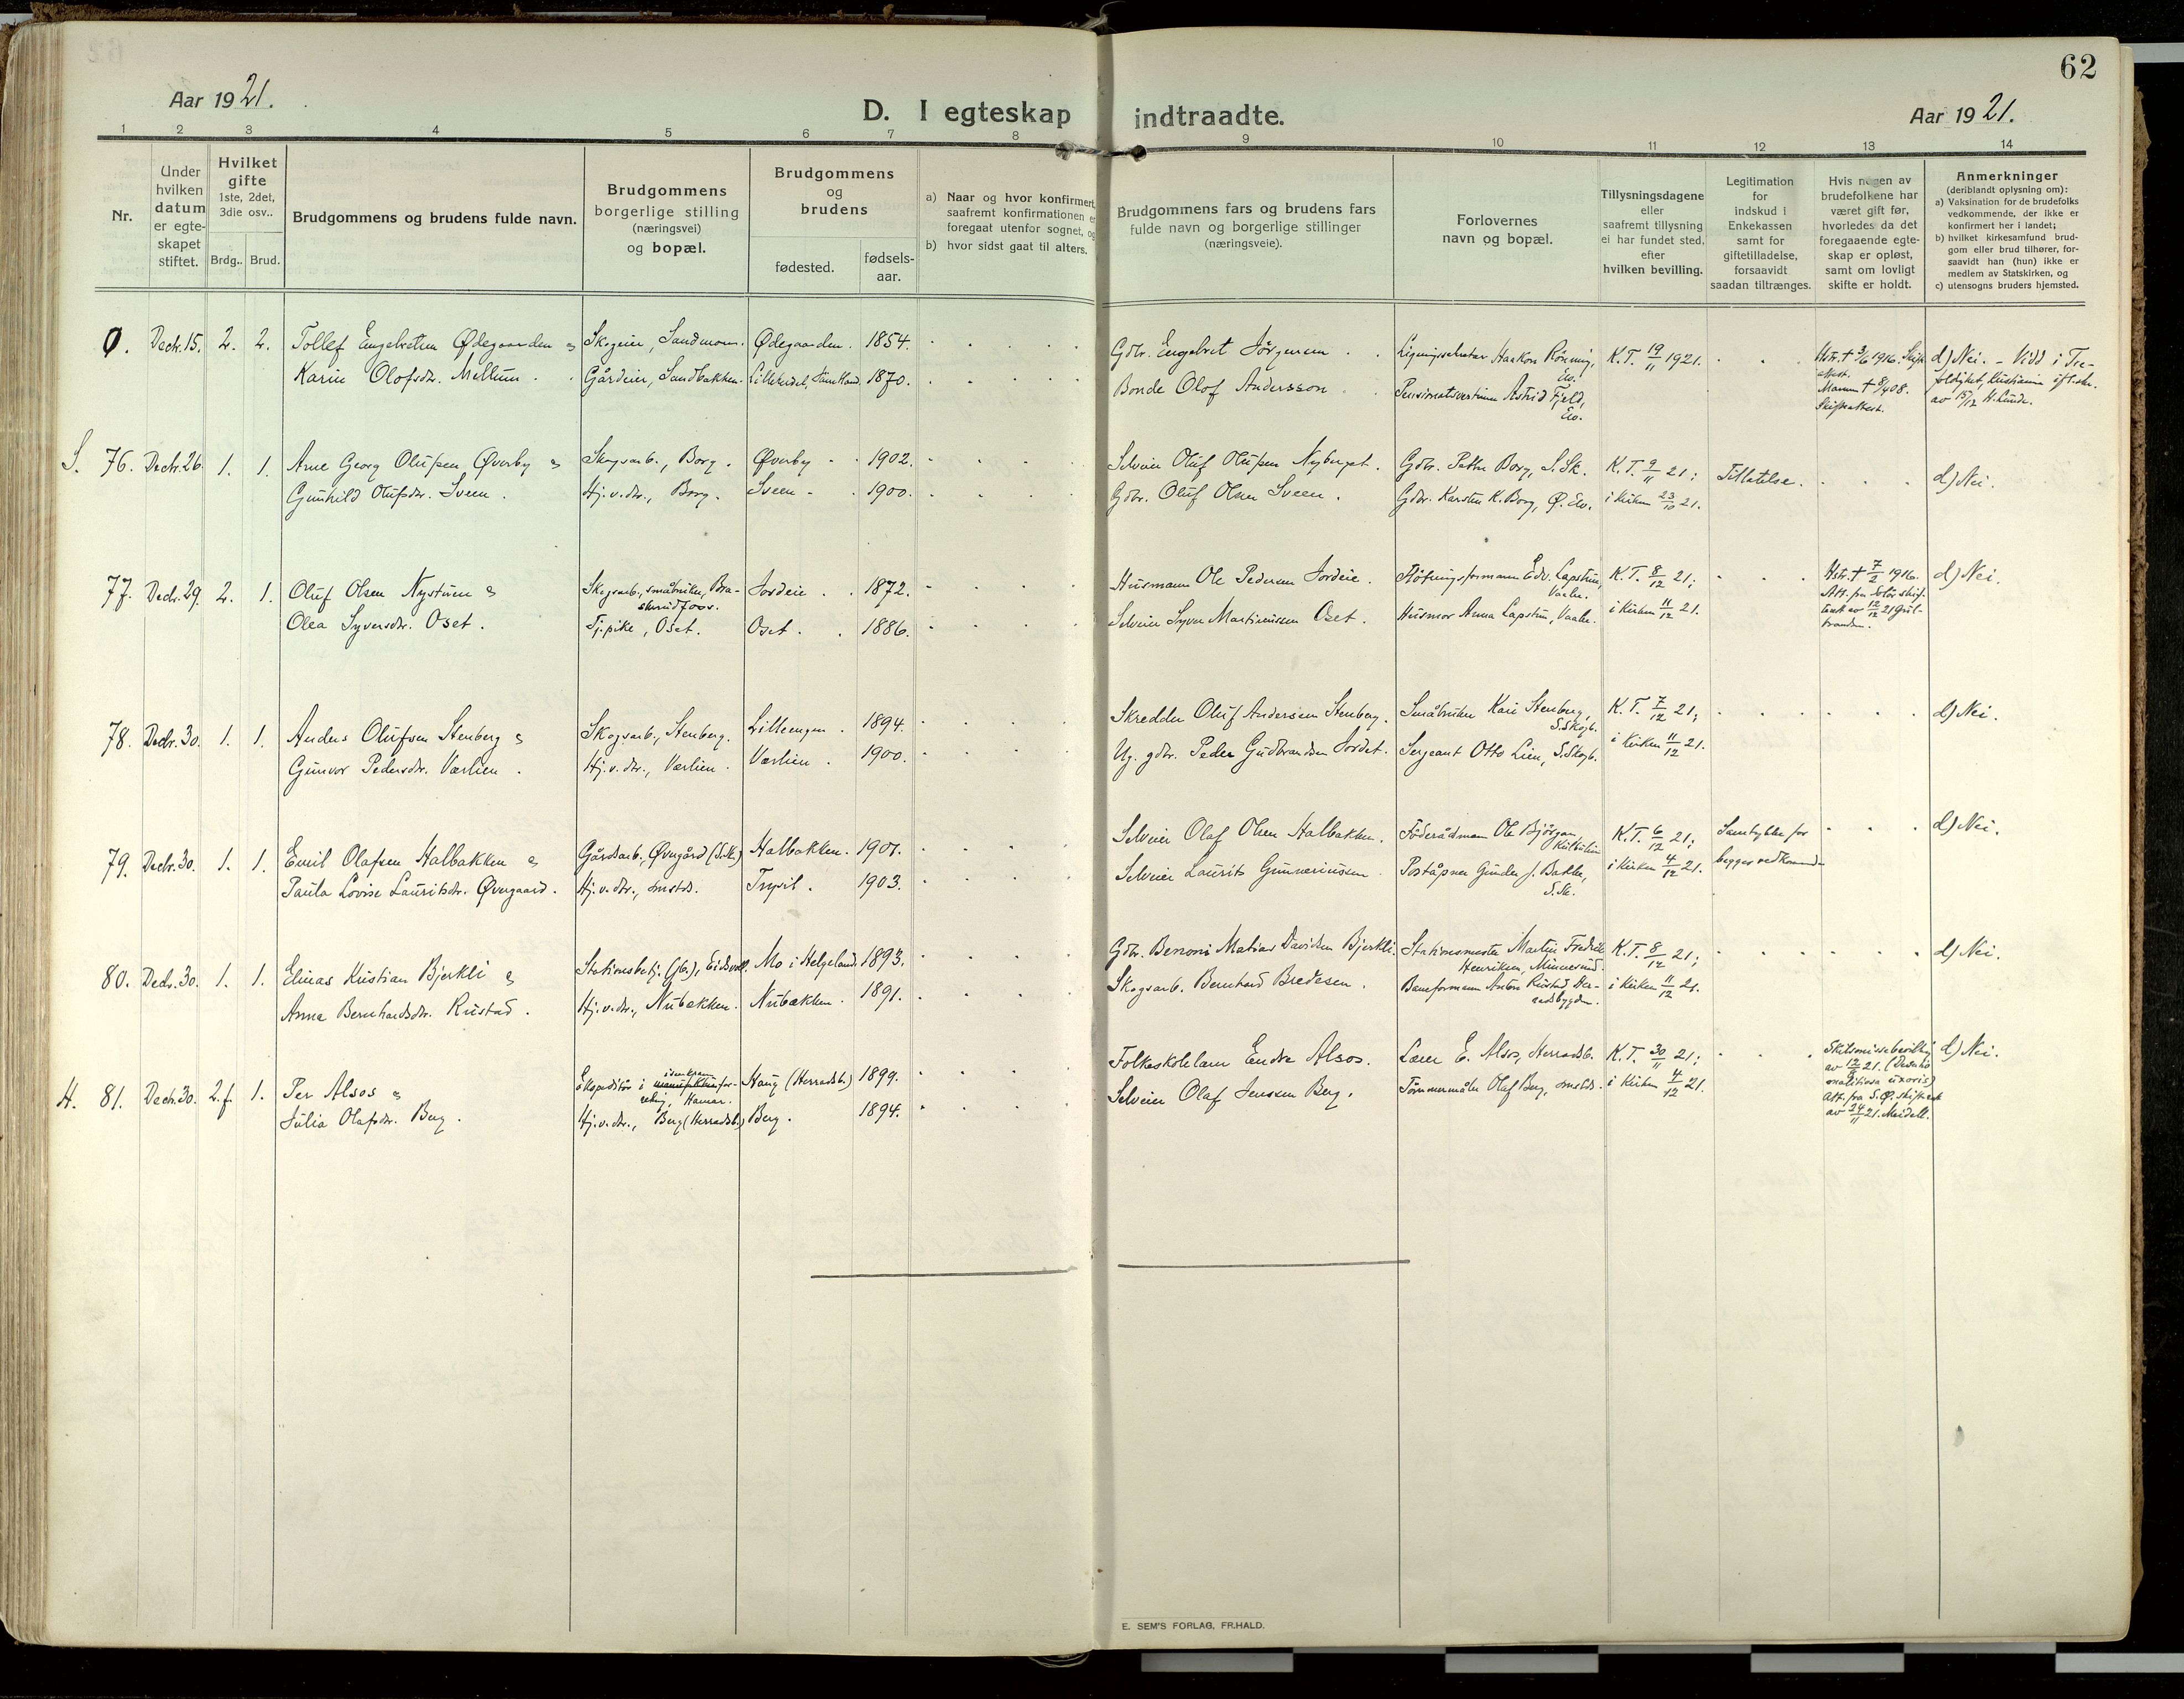 62
Aar 1921.
D. I egteskap indtraadte.
Aar 1921.
1 2 3 4 5 6 7 8 9 10 11 12 13 14
Nr.
Under hvilken datum er egteskapet stiftet.
Hvilket gifte 1ste, 2det, 3die osv..
Brdg.. Brud.
Brudgommens og brudens fulde navn.
Brudgommens borgerlige stilling (næringsvei) og bopæl.
Brudgommens og brudens
fødested.
fødsels-aar.
a) Naar og hvor konfirmert, saafremt konfirmationen er foregaat utenfor sognet, og
b) hvor sidst gaat til alters.
Brudgommens fars og brudens fars fulde navn og borgerlige stillinger (næringsveie).
Forlovernes navn og bopæl.
Tillysningsdagene eller saafremt tillysning ei har fundet sted, efter hvilken bevilling.
Legitimation for indskud i Enkekassen samt for giftetilladelse, forsaavidt saadan tiltrænges.
Hvis nogen av brudefolkene har været gift før, hvorledes da det foregaaende egteskap er opløst, samt om lovligt skifte er holdt.
Anmerkninger (deriblandt oplysning om):
a) Vaksination for de brudefolks vedkommende, der ikke er konfirmert her i landet;
b) hvilket kirkesamfund brudgom eller brud tilhører, forsaavidt han (hun) ikke er medlem av Statskirken, og
c) utensogns bruders hjemsted.
0. Decbr. 15. 2. 2. Tollef Engebretsen Ødegaarden & Skogeier, Sandmoen. Ødegaarden. 1854. Gdbr. Engebret Jørgensen. Ligningssekretær Haakon Rönning, Elv. K.T. 19/11 1921. Hstr. † 3/6 1916. Skifteattest. d) Nei. – Vidd i Tre-
Karin Olofsdr. Mellum. Gårdeier, Sandbakken. Lillherdal, Jämtland. 1870. Bonde Olof Andersson. Pensionatsvertinne Astrid Fjeld, Elv. Mannen † 8/4 08. Skifteattest. foldighet, Kristiania öfl. skr. av 15/12 H. Lunde.
S. 76. Decbr. 26. 1. 1. Arne Georg Olufsen Øverby & Skogsarb., Borg. Øverby 1902. Selveier Oluf Olufsen Nyberget. Gdbr. Petter Borg, S. Sk. K.T. 9/11 21; Tillatelse. d) Nei.
Gunhild Olufsdr. Sveen. Hj.v.dtr., Borg. Sveen 1900. Gdbr. Oluf Olsen Sveen. Gdbr. Karsten K. Borg, Ø. Elv. i kirken 23/10 21.
77. Decbr. 29. 2. 1. Oluf Olsen Nystuen & Skogsarb., småbruker, Braskerudfoss. Jordeie 1872. Husmann Ole Pedersen Jordeie. Fløtningsformann Edv. Lapstun, Vaaler. K.T. 8/12 21; Hstr. † 7/2 1916. Att. fra Solør skifterett av 12/12 21 Gulbrandsen. d) Nei.
Olea Syversdr. Oset. Tj.pike, Oset. Oset 1886. Selveier Syver Martiniussen Oset. Husmor Anna Lapstun, Vaaler. i kirken 11/12 21.
78. Decbr. 30. 1. 1. Anders Olufsen Stenberg & Skogsarb., Stenberg. Lilleengen. 1894. Skredder Oluf Andersen Stenberg. Småbruker Kari Stenberg, S. Skogb. K.T. 7/12 21; d) Nei.
Gunvor Pedersdr. Værlien. Hj.v.dtr., Værlien. Værlien. 1900. Ug. gdbr. Peder Gudbrandsen Jordet. Sergeant Otto Lien, S. Skogb. i kirken 11/12 21.
79. Decbr. 30. 1. 1. Emil Olafsen Halbakken & Gårdsarb., Øvergård (S.Sk.) Halbakken. 1901. Selveier Olaf Olsen Halbakken. Föderådsmann Ole Bjørgan, K.T. 6/12 21; Samtykke for d) Nei.
Paula Lovise Lauritsdr. Øvergaard. Hj.v.dtr., smstds. Trysil. 1903. Selveier Laurits Gunneriussen. Poståpner Gunder J. Bakken, S. Sk. i kirken 4/12 21. begges vedkomm.
80. Decbr. 30. 1. 1. Elinas Kristian Bjerkli & Stationsbetj. (jb.), Eidsvoll. Mo i Helgeland. 1893. Gdbr. Benoni Matias Davidsen Bjerkli. Stationsmester Martin Fredrik Henriksen, Minnesund. K.T. 8/12 21; d) Nei.
Anna Bernhardsdr. Rustad. Hj.v.dtr., Nubakken. Nubakken. 1891. Skogsarb. Bernhard Bredesen. Baneformann Anton Rustad, Herradsbygden. i kirken 11/12 21.
H. 81. Decbr. 30. 2. f. 1. Per Alsos & Ekspeditør i manufaktur isenkramforretning, Hamar. Haug (Herradsb.) 1899. Folkeskolelærer Endre Alsos. Lærer E. Alsos, Herradsb. K.T. 30/11 21; Skilsmissebevilling av 12/8 21. (Desertio malitiosa uxoris) Att. fra S.Ø. skifterett av 24/11 21. Meidell. d) Nei.
Julia Olafsdr. Berg. Hj.v.dtr., Berg (Herradsb.) Berg. 1894. Selveier Olaf Jenssen Berg. Tömmermåler Olaf Berg, smstds. i kirken 4/12 21.
E. SEM'S FORLAG, FR.HALD.